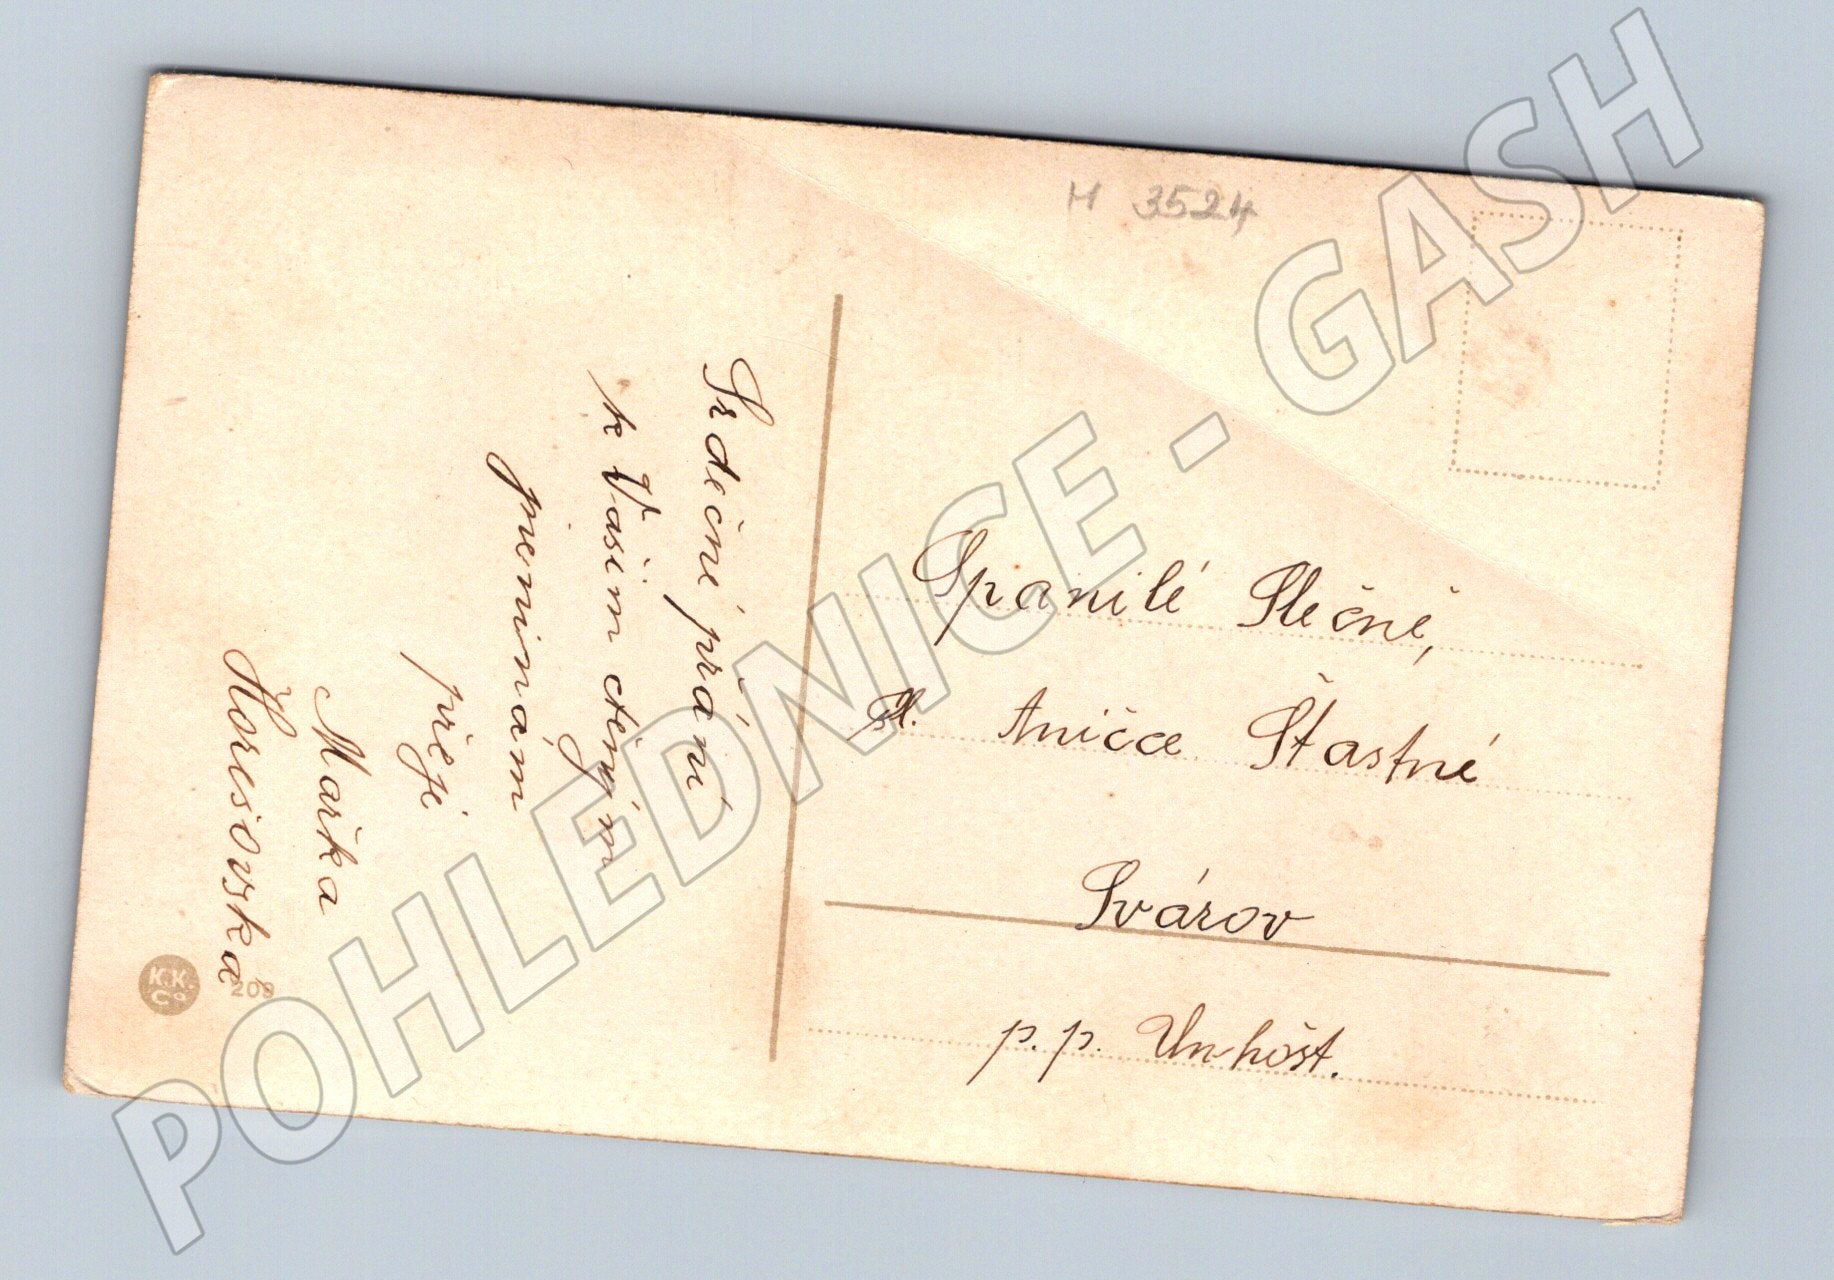 H 3524
Srdečné přání
k Vašim ctěným
jmeninám
přeje
Mařka
Horesiovská
K.K.
Co
209
Spanilé Slečně,
Sl. Aničce Šťastné
Svárov
p.p. Unhošt.
POHLEDNICE - GASH